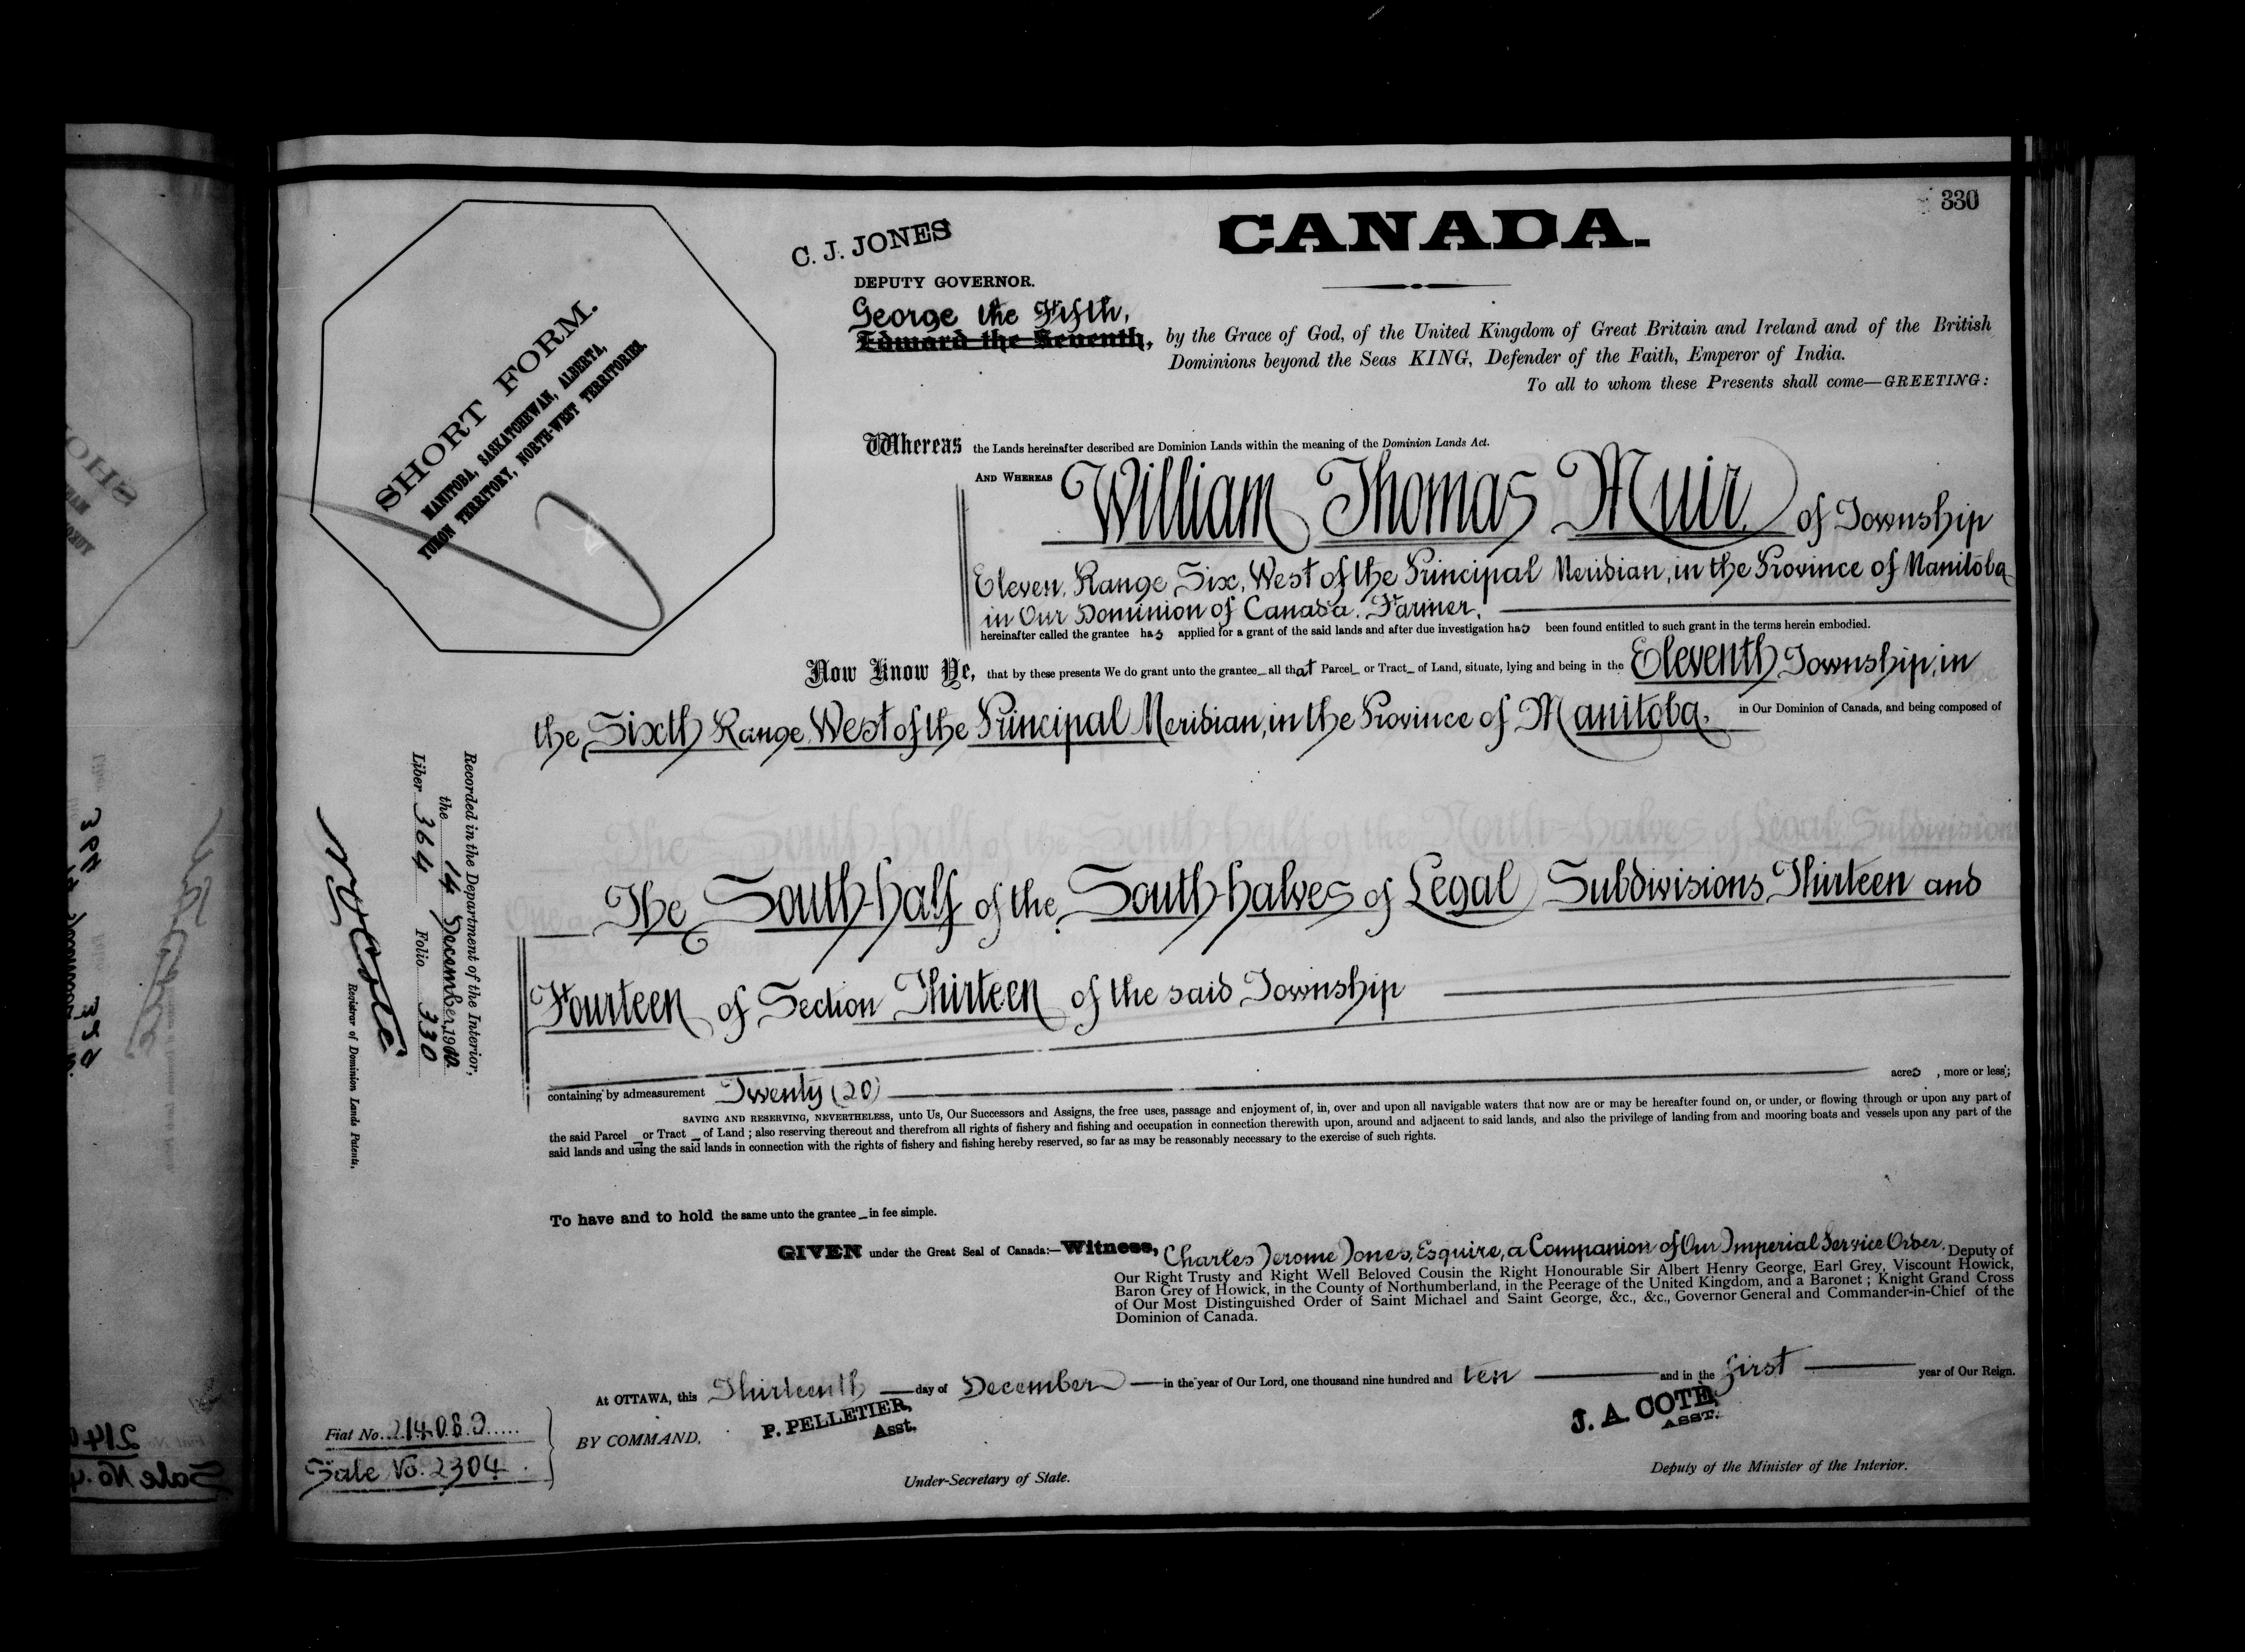 330
CANADA.
C. J. JONES
DEPUTY GOVERNOR.
George the Fifth,
Edward the Seventh, by the Grace of God, of the United Kingdom of Great Britain and Ireland and of the British
Dominions beyond the Seas KING, Defender of the Faith, Emperor of India.
To all to whom these Presents shall come—GREETING:
SHORT FORM.
MANITOBA, SASKATCHEWAN, ALBERTA,
YUKON TERRITORY, NORTH-WEST TERRITORIES.
Whereas the Lands hereinafter described are Dominion Lands within the meaning of the Dominion Lands Act.
AND WHEREAS William Thomas Muir of Township
Eleven, Range Six, West of the Principal Meridian, in the Province of Manitoba
in Our Dominion of Canada, Farmer,
hereinafter called the grantee has applied for a grant of the said lands and after due investigation has been found entitled to such grant in the terms herein embodied.
Now Know Ye, that by these presents We do grant unto the grantee all that Parcel or Tract of Land, situate, lying and being in the Eleventh Township, in
the Sixth Range, West of the Principal Meridian, in the Province of Manitoba, in Our Dominion of Canada, and being composed of
The South-half of the South-halves of Legal Subdivisions Thirteen and
Fourteen of Section Thirteen of the said Township
containing by admeasurement Twenty (20) acres, more or less;
SAVING AND RESERVING, NEVERTHELESS, unto Us, Our Successors and Assigns, the free uses, passage and enjoyment of, in, over and upon all navigable waters that now are or may be hereafter found on, or under, or flowing through or upon any part of
the said Parcel or Tract of Land; also reserving thereout and therefrom all rights of fishery and fishing and occupation in connection therewith upon, around and adjacent to said lands, and also the privilege of landing from and mooring boats and vessels upon any part of the
said lands and using the said lands in connection with the rights of fishery and fishing hereby reserved, so far as may be reasonably necessary to the exercise of such rights.
To have and to hold the same unto the grantee in fee simple.
GIVEN under the Great Seal of Canada:—Witness, Charles Jerome Jones, Esquire, a Companion of Our Imperial Service Order, Deputy of
Our Right Trusty and Right Well Beloved Cousin the Right Honourable Sir Albert Henry George, Earl Grey, Viscount Howick,
Baron Grey of Howick, in the County of Northumberland, in the Peerage of the United Kingdom, and a Baronet; Knight Grand Cross
of Our Most Distinguished Order of Saint Michael and Saint George, &c., &c., Governor General and Commander-in-Chief of the
Dominion of Canada.
At OTTAWA, this Thirteenth day of December in the year of Our Lord, one thousand nine hundred and ten and in the first year of Our Reign.
BY COMMAND,
P. PELLETIER,
Asst.
Under-Secretary of State.
J. A. COTÉ,
ASST.
Deputy of the Minister of the Interior.
Recorded in the Department of the Interior,
the 14 December, 1910
Liber 364 Folio 330
N. O. Coté
Registrar of Dominion Lands Patents.
Fiat No. 214080
Sale No. 2304